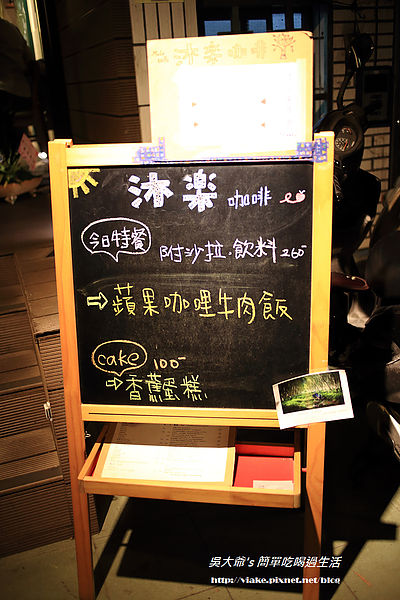 沐樂咖啡
沐樂 咖啡
今日特餐
附沙拉.飲料 260
⇨蘋果咖哩牛肉飯
cake 100
⇨香蕉蛋糕
吳大爺's 簡單吃喝過生活
http://viake.pixnet.net/blog